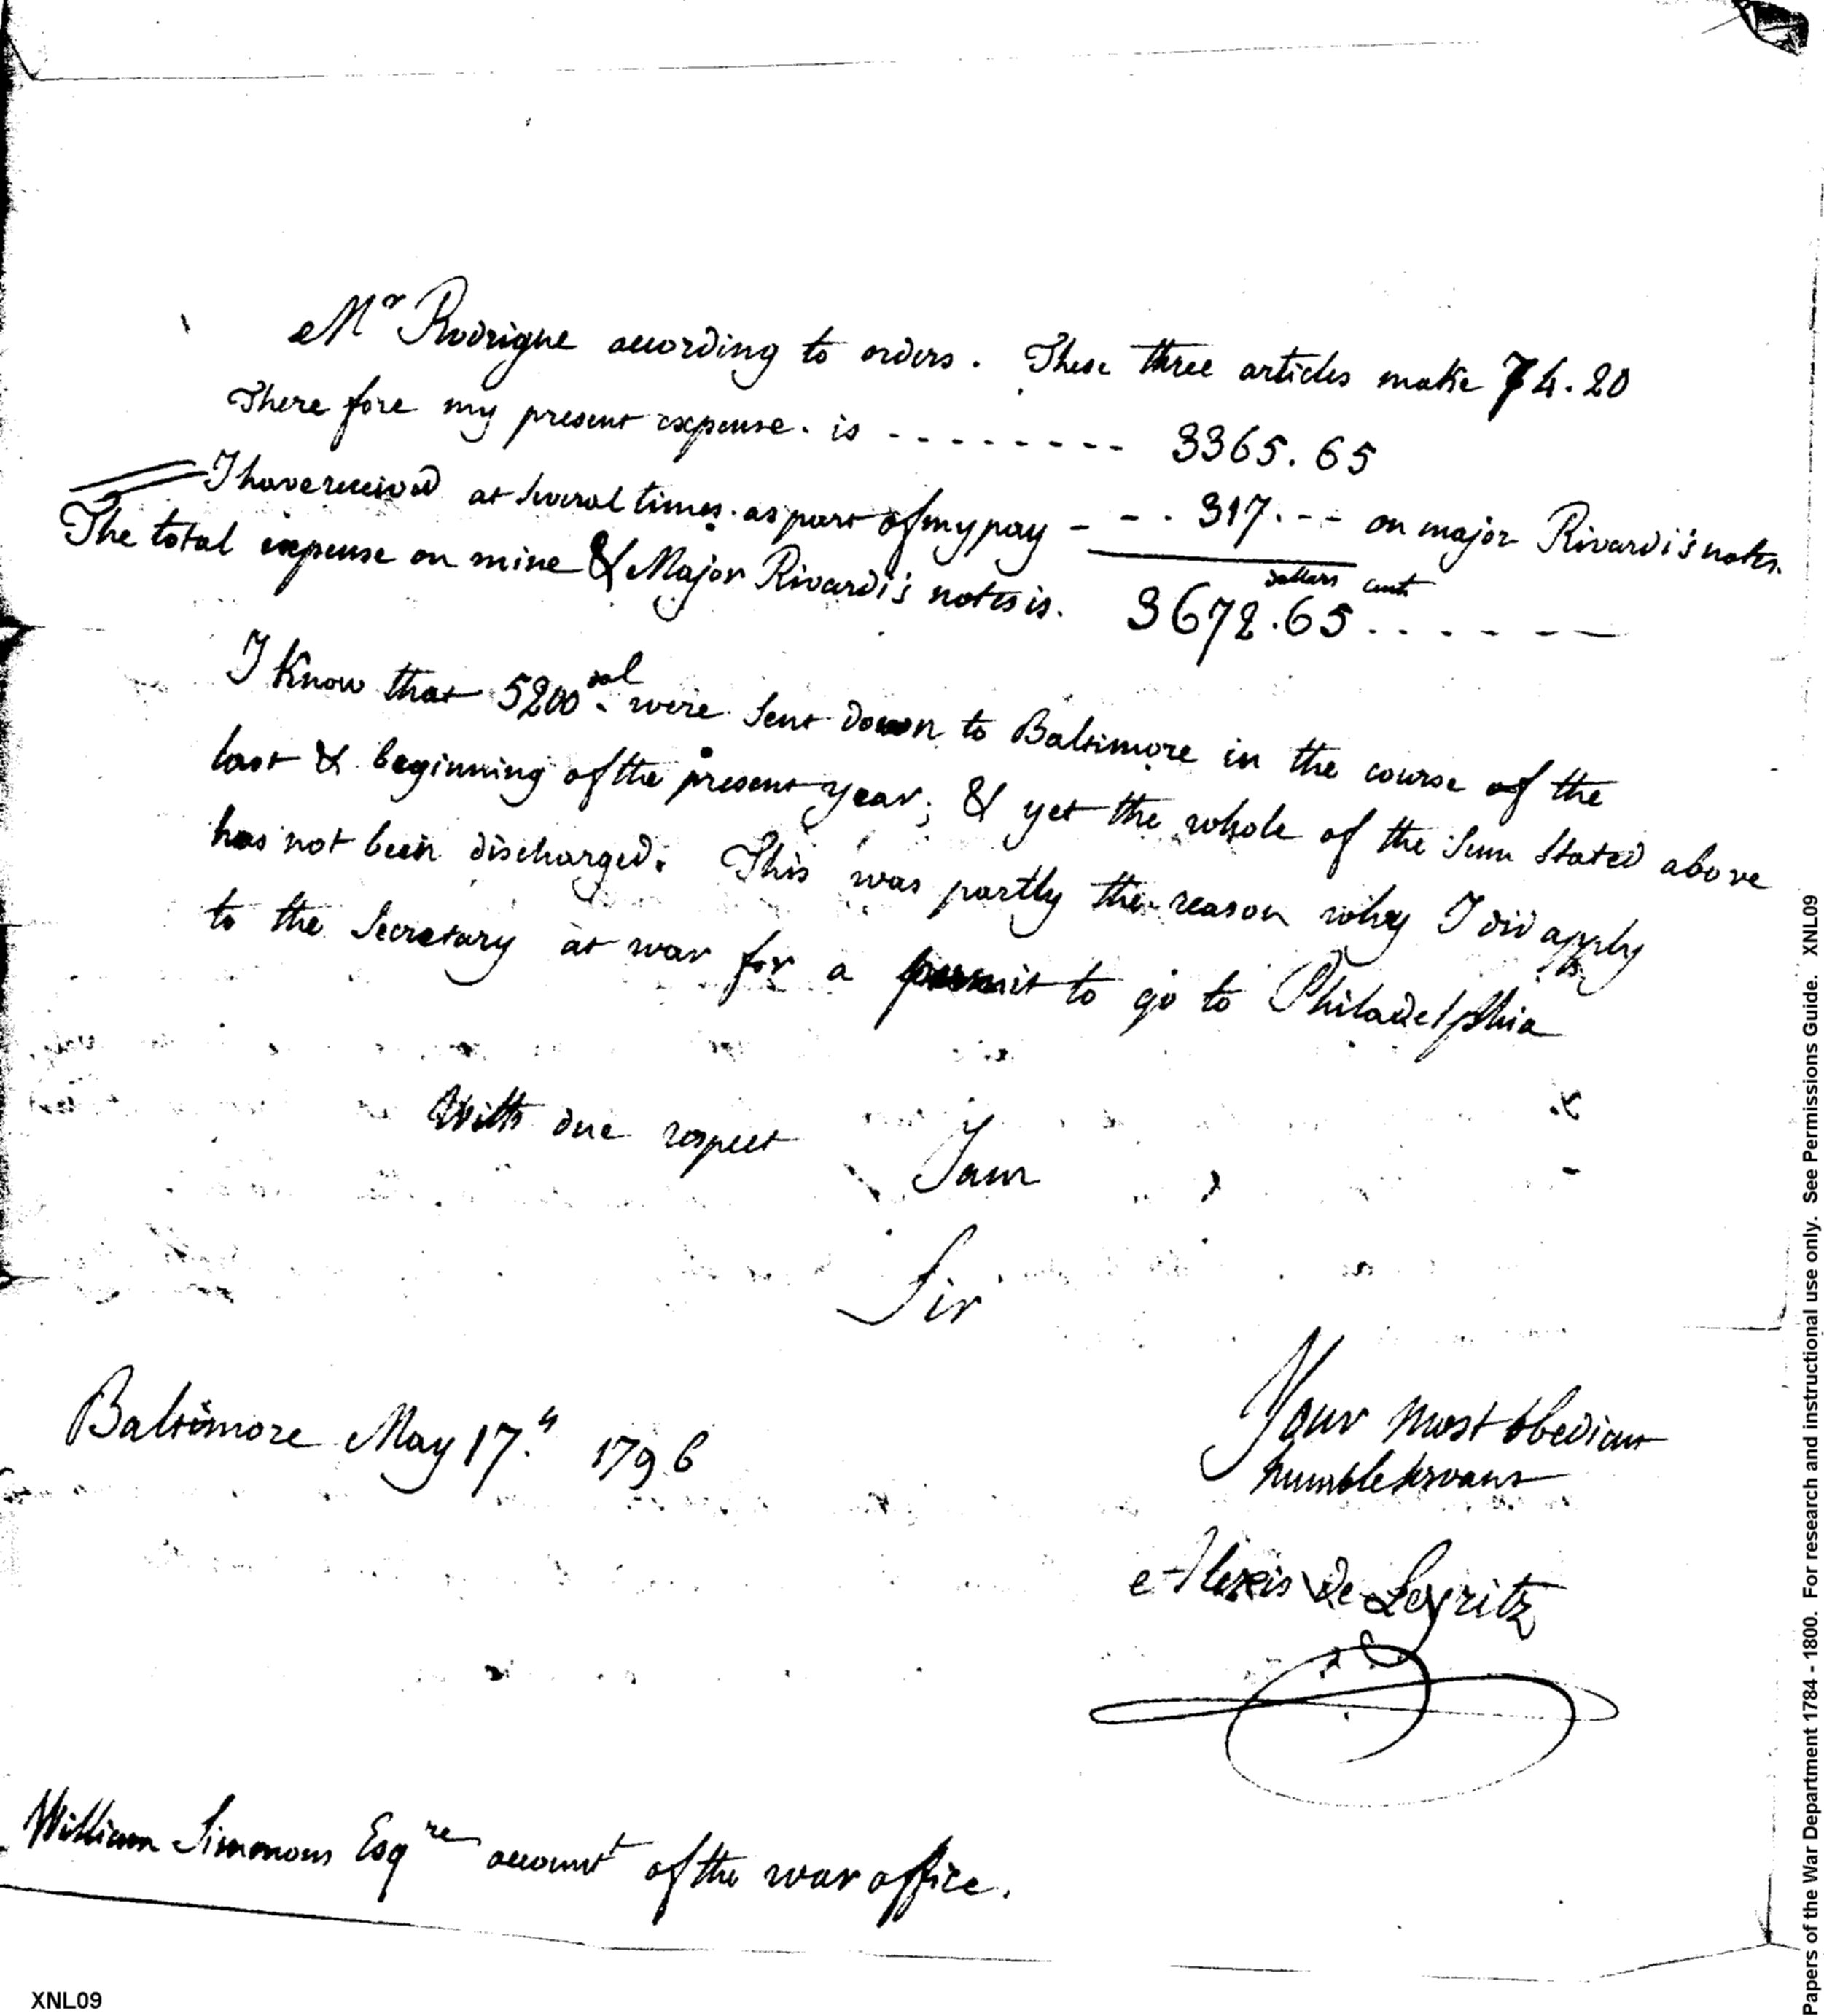 Mr Rodrigue according to orders. These three articles make 74.20
There fore my present expense. is -------- 3365.65
I have received at several times. as part of my pay - - - 317. -- on major Rivardi's notes.
The total expense on mine & Major Rivardi's notes is. 3672.65 dollars cents
I Know that 5200 dol. were sent down to Baltimore in the course of the
last & beginning of the present year; & yet the whole of the sum stated above
has not been discharged. This was partly the reason why I did apply
to the Secretary at war for a permit to go to Philadelphia
With due respect
I am
Sir
Your most obedient
humble servant
Baltimore May 17.th 1796
Alexis De Leyritz
William Simmons Esqre account of the war office.
XNL09
Papers of the War Department 1784 - 1800. For research and instructional use only. See Permissions Guide. XNL09